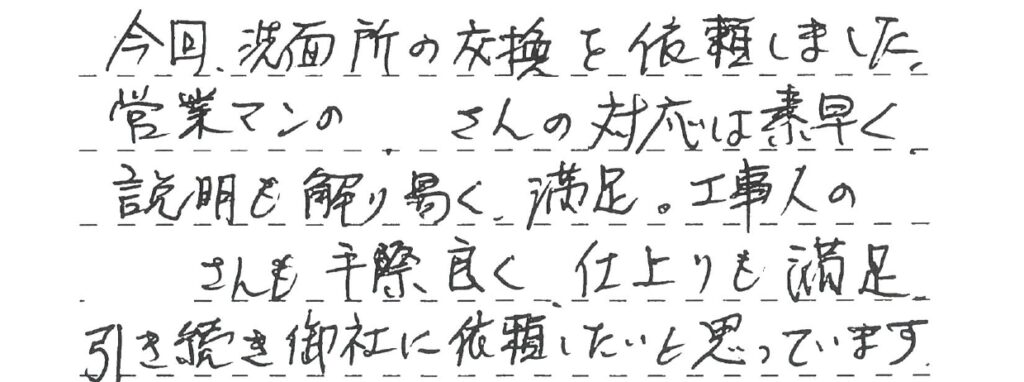 今回、洗面所の交換を依頼しました。
営業マンの　　さんの対応は素早く、
説明も解り易く、満足。工事人の
さんも手際良く、仕上りも満足
引き続き御社に依頼したいと思っています